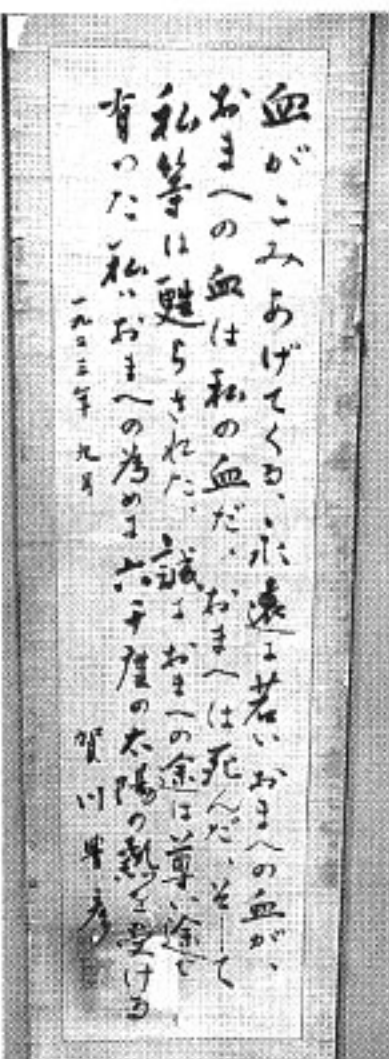 血がこみあげてくる、永遠に若いおまへの血が、
おまへの血は私の血だ、おまへは死んだ、そして
私等は甦らされた、誠におまへの途は尊い途で
有つた私はおまへの為めに六千度の太陽の熱を受ける
一九二三年 九月
賀川豊彦